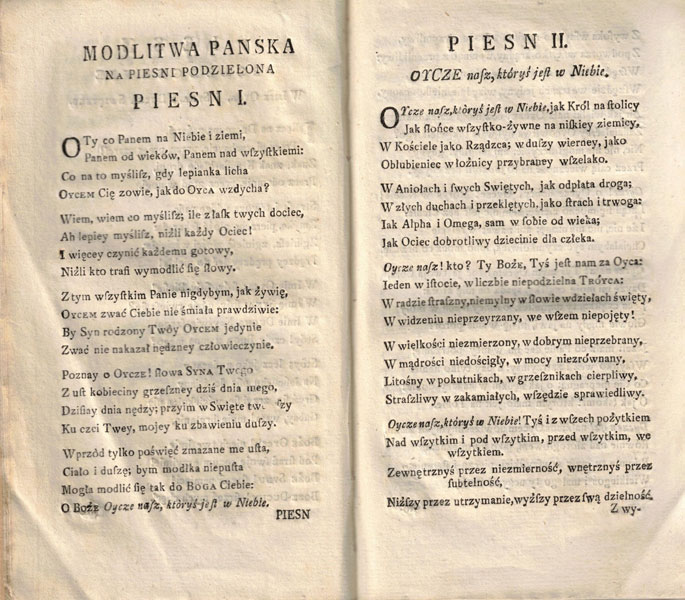 MODLITWA PANSKA
NA PIESNI PODZIELONA
PIESN I.
O Ty co Panem na Niebie i ziemi,
Panem od wieków, Panem nad wſzyſtkiemi:
Co na to myśliſz, gdy lepianka licha
OYCEM Cię zowie, jak do OYCA wzdycha?
Wiem, wiem co myśliſz; ile z łaſk twych dociec,
Ah lepiey myśliſz, niźli każdy Ociec!
I więcey czynić każdemu gotowy,
Niźli kto trafi wymodlić ſię ſłowy.
Z tym wſzyſtkim Panie nigdybym, jak żywię,
OYCEM zwać Ciebie nie śmiała prawdziwie:
By Syn rodzony Twóy OYCEM jedynie
Zwać nie nakazał nędzney człowieczynie.
Poznay o OYCZE! ſłowa SYNA Twego
Z uſt kobieciny grzeſzney dziś dnia mego,
Dziſiay dnia nędzy; przyim w Swięte
Ku czci Twey, mojey ku zbawieniu duſzy.
Wprzód tylko poświęć zmazane me uſta,
Ciało i duſzę; bym modłka niepuſta
Mogła modlić ſię tak do BOGA Ciebie:
O BOŻE Oycze naſz, któryś jeſt w Niebie.
PIESN
PIESN II.
OYCZE naſz, któryś jeſt w Niebie.
OYcze naſz, któryś jeſt w Niebie, jak Król na ſtolicy
Jak ſłońce wſzyſtko-żywne na niſkiey ziemicy,
W Kościele jako Rządzca; w duſzy wierney, jako
Oblubieniec w łożnicy przybraney wſzelako.
W Aniołach i ſwych Swiętych, jak odpłata droga;
W złych duchach i przeklętych, jako ſtrach i trwoga:
Iak Alpha i Omega, sam w ſobie od wieka;
Jak Ociec dobrotliwy dziecinie dla człeka.
Oycze naſz! kto? Ty BOŻE, Tyś jeſt nam za OYCA:
Ieden w iſtocie, w liczbie niepodzielna TRÓYCA:
W radzie ſtraſzny, niemylny w ſłowie w dziełach święty,
W widzeniu nieprzeyrzany, we wſzem niepojęty!
W wielkości niezmierzony, w dobrym nieprzebrany,
W mądrości niedościgły, w mocy niezrównany,
Litośny w pokutnikach, w grzeſznikach cierpliwy,
Straſzliwy w zakamiałych, wſzędzie ſprawiedliwy.
Oycze naſz, któryś w Niebie! Tyś i z wſzech pożytkiem
Nad wſzytkim i pod wſzytkim, przed wſzytkim, we
wſzytkiem.
Zewnętrznyś przez niezmierność, wnętrznyś przez
ſubtelność,
Niżſzy przez utrzymanie, wyżſzy przez ſwą dzielność.
Z wy-